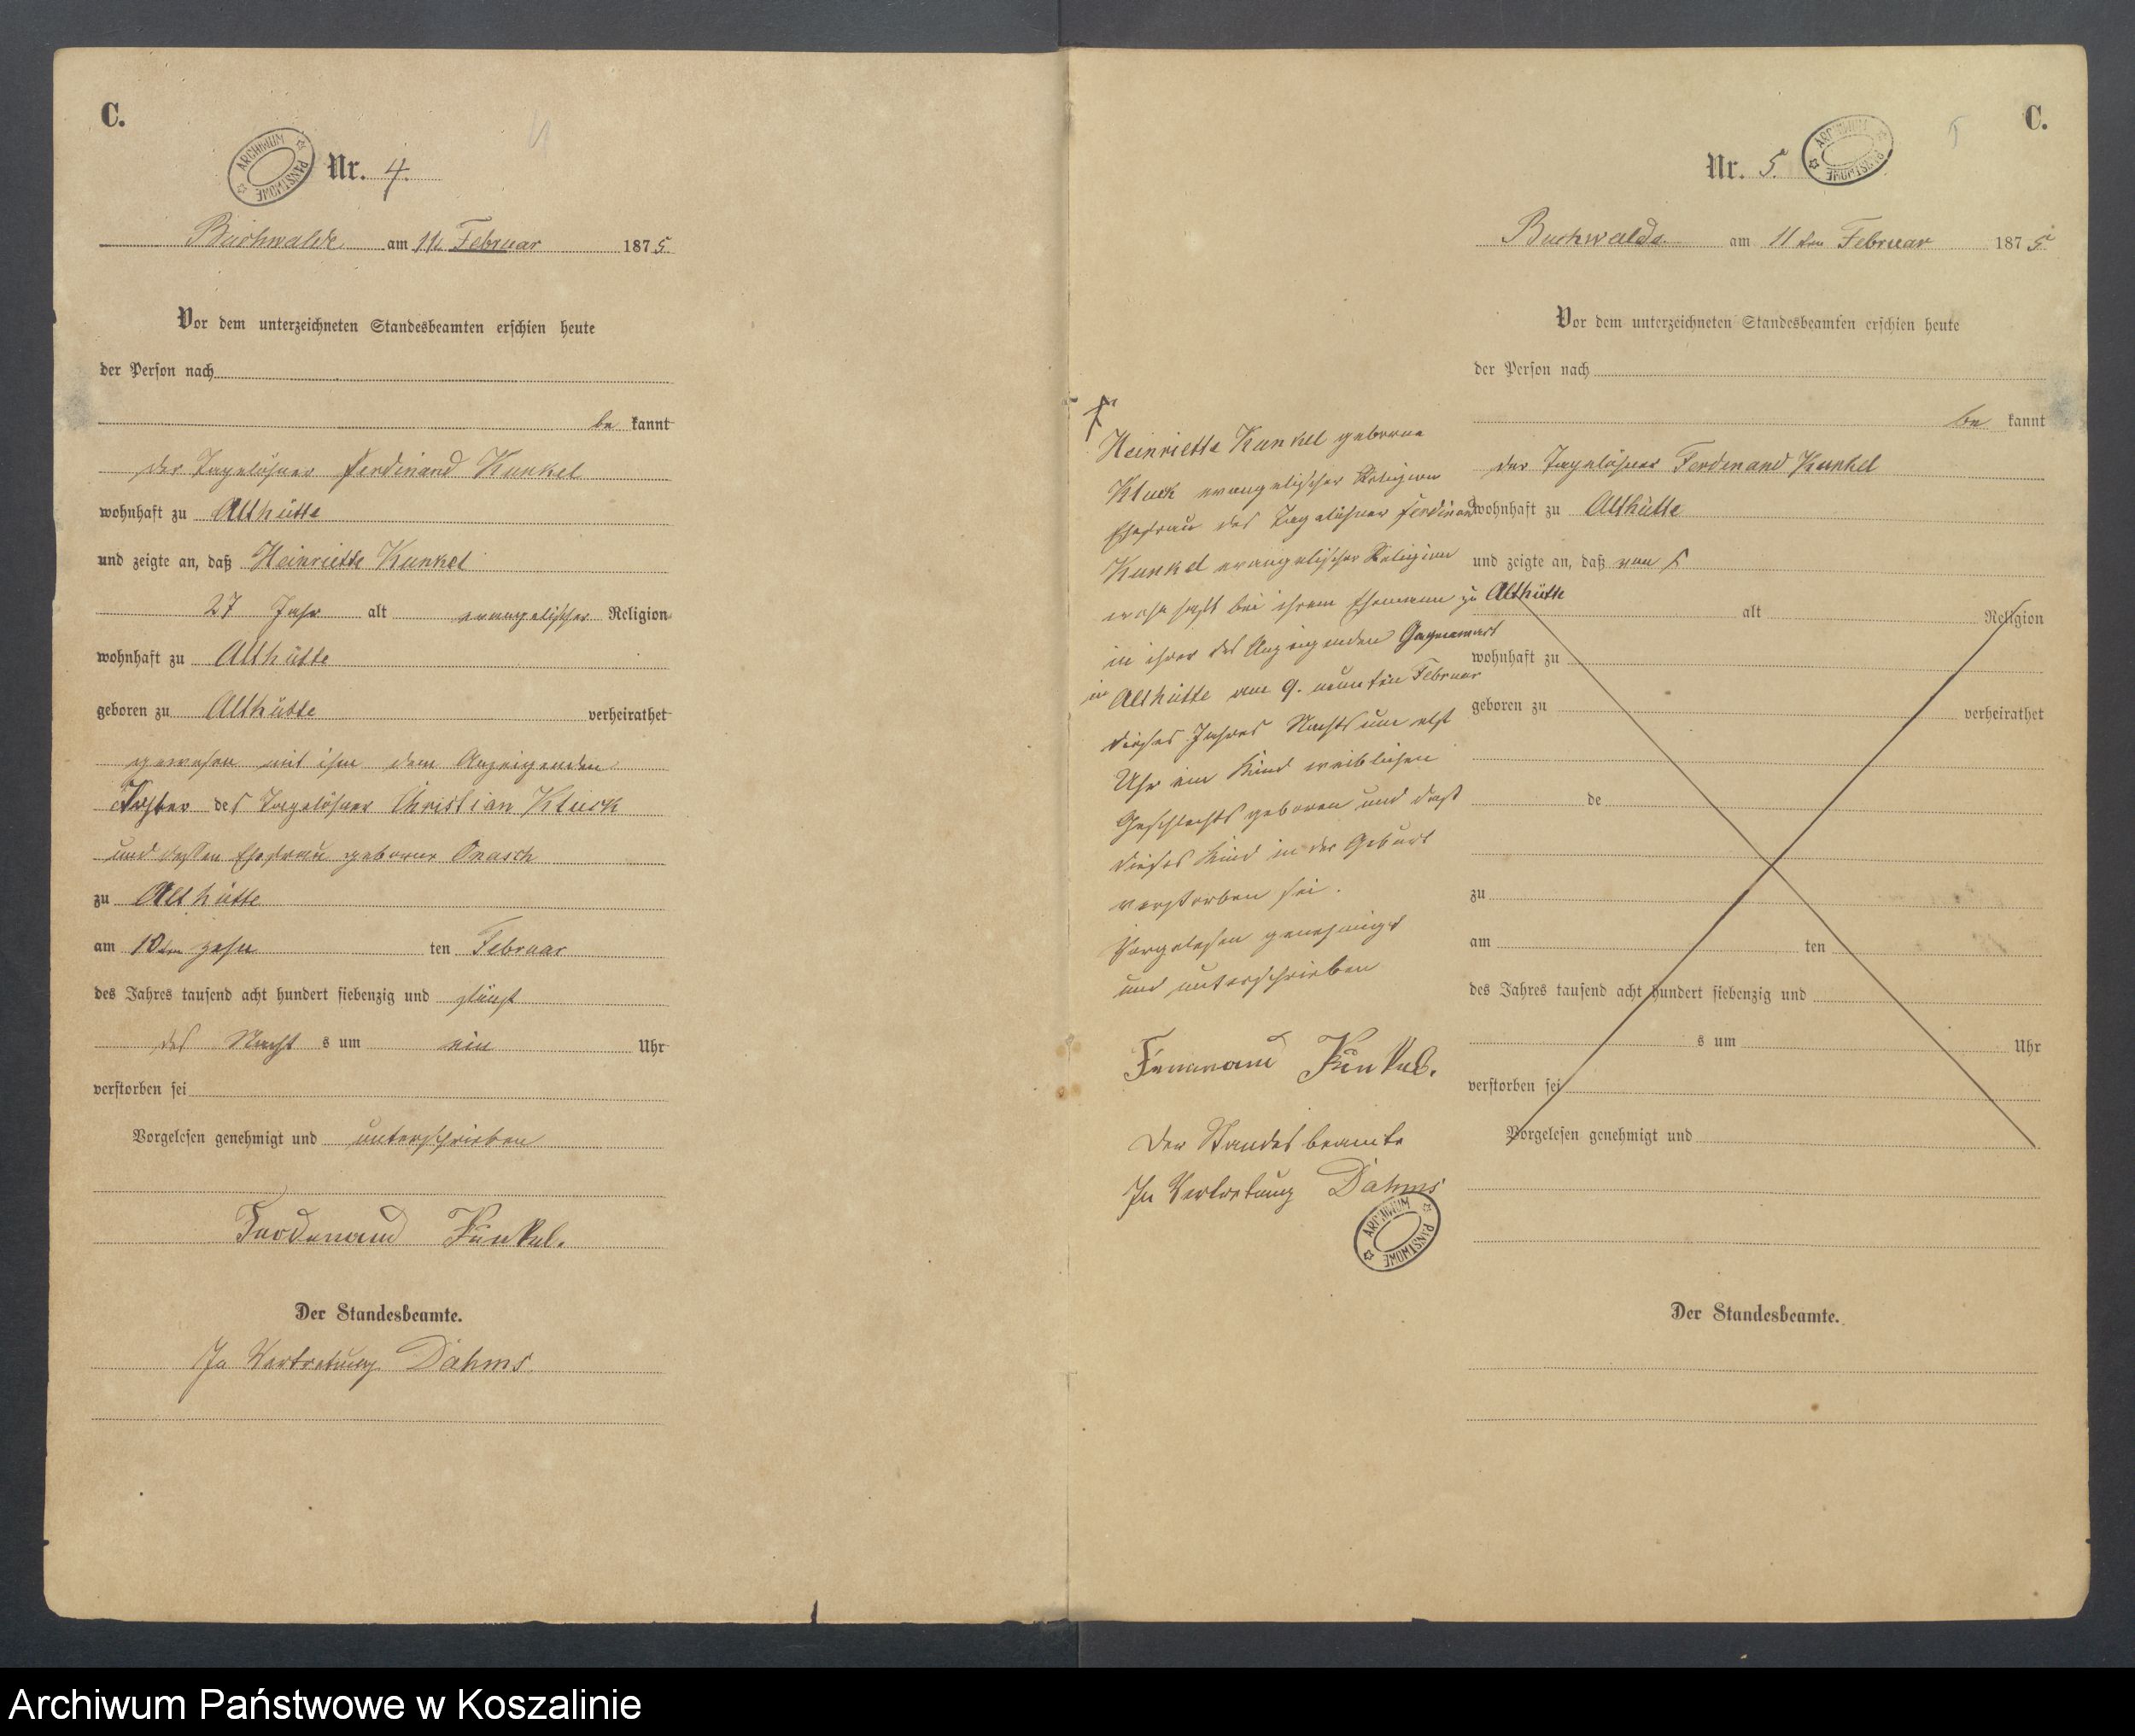 C.
ARCHIWUM PAŃSTWOWE
Nr. 4.
4
Buchwalde am 11 Februar 1875
Vor dem unterzeichneten Standesbeamten erschien heute
der Person nach
be kannt
der Tagelöhner Ferdinand Kunkel
wohnhaft zu Althütte
und zeigte an, daß Heinriette Kunkel
27 Jahr alt evangelischer Religion
wohnhaft zu Althütte
geboren zu Althütte verheirathet
gewesen mit ihm dem Anzeigenden
Tochter des Tagelöhner Christian Kluck
und dessen Ehefrau geborne Onasch
zu Althütte
am 10ten zehn ten Februar
des Jahres tausend acht hundert siebenzig und fünf
des Nacht s um ein Uhr
verstorben sei
Vorgelesen genehmigt und unterschrieben
Ferdinand Kunkel.
Der Standesbeamte.
In Vertretung Dahms.
C.
Nr. 5.
ARCHIWUM PAŃSTWOWE
5
Buchwalde am 11 ten Februar 1875
Vor dem unterzeichneten Standesbeamten erschien heute
der Person nach
be kannt
der Tagelöhner Ferdinand Kunkel
wohnhaft zu Althütte
und zeigte an, daß von
alt Religion
wohnhaft zu
geboren zu verheirathet
de
zu
am ten
des Jahres tausend acht hundert siebenzig und
s um Uhr
verstorben sei
Vorgelesen genehmigt und
Der Standesbeamte.
Heinriette Kunkel geborne
Kluck evangelischer Religion
Ehefrau des Tagelöhner Ferdinand
Kunkel evangelischer Religion
wohnhaft bei ihrem Ehemann zu Althütte
in ihrer des Anzeigenden Gegenwart
in Althütte am 9. neunten Februar
dieses Jahres Nachts um elf
Uhr ein Kind weiblichen
Geschlechts geboren und daß
dieses Kind in der Geburt
verstorben sei.
Vorgelesen genehmigt
und unterschrieben
Kunkel.
Der Standesbeamte
In Vertretung Dahms
ARCHIWUM PAŃSTWOWE
Archiwum Państwowe w Koszalinie